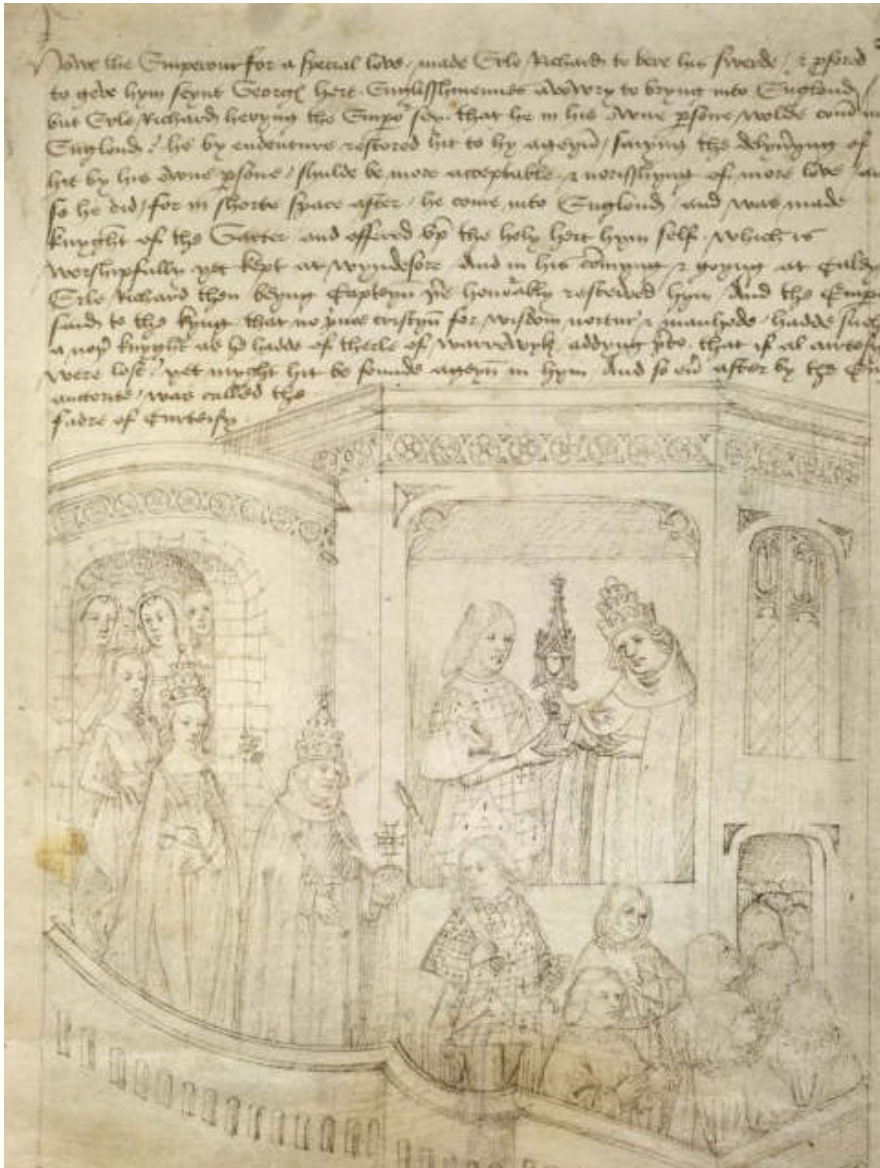 Howe the Emperour for a special love made Erle Richard to bere his swerde / & p̱fored
to geve hym seynt Georges hert Englisshmennes avowry to bryng into Englond /
but Erle Richard heryng the Empo' sey that he in his owne p̱sone wolde com
Englond / he by endenture restored hit to hy ageyn / saying the delyv̄yng of
hit by his owne p̱sone / shulde be more acceptable & norisshyng of more love
so he did / for in shorte space after / he come into Englond and was made
knyght of the Garter and offered vp̄ the holy hert hym self which is
worshipfully yet kept at wyndesore And in his cōmyng & goyng at
Erle Richard then beyng Capteyn honorably resceived hym And the
said to the kyng that no cristyn for wisdom nortur & manhode / hadde
a knyght as he hadde of therle of warrewyk addyng that if al curtesy
were lost / yet myght hit be founde ageyn in hym And so after by the
auctorite was called the
fadre of Curteisy